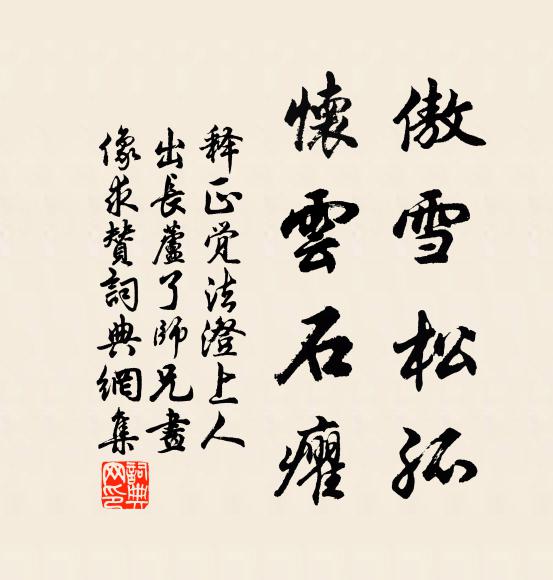 傲雪松孤
懷雲石癯
释正觉法澄上人
出長蘆了師兄畫
像求贊詞典網集
詞典网印